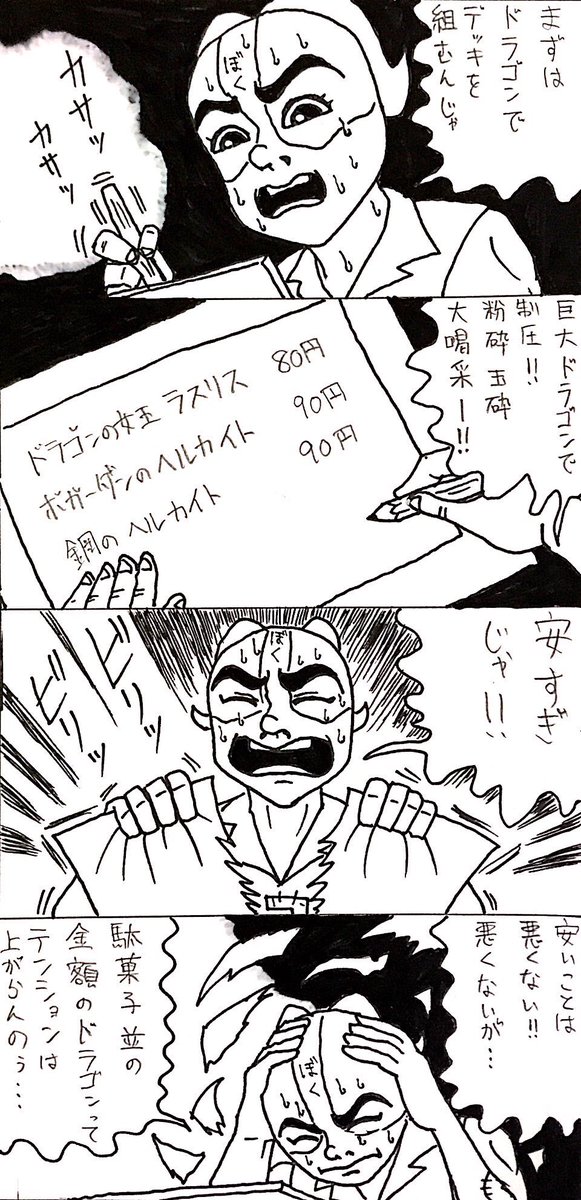 まずは
ドラゴンで
デッキを
組むんじゃ
ぼく
カサッ
カサッ
巨大ドラゴンで
制圧!!
粉砕玉砕
大喝采ー!!
ドラゴンの女王 ラスリス 80円
ボガーダンのヘルカイト 90円
鋼のヘルカイト 90円
安すぎ
じゃ!!
ぼく
ビリッ
ビリッ
安いことは
悪くない!!
悪くないが…
ぼく
駄菓子並の
金額のドラゴンって
テンションは
上がらんのぅ…